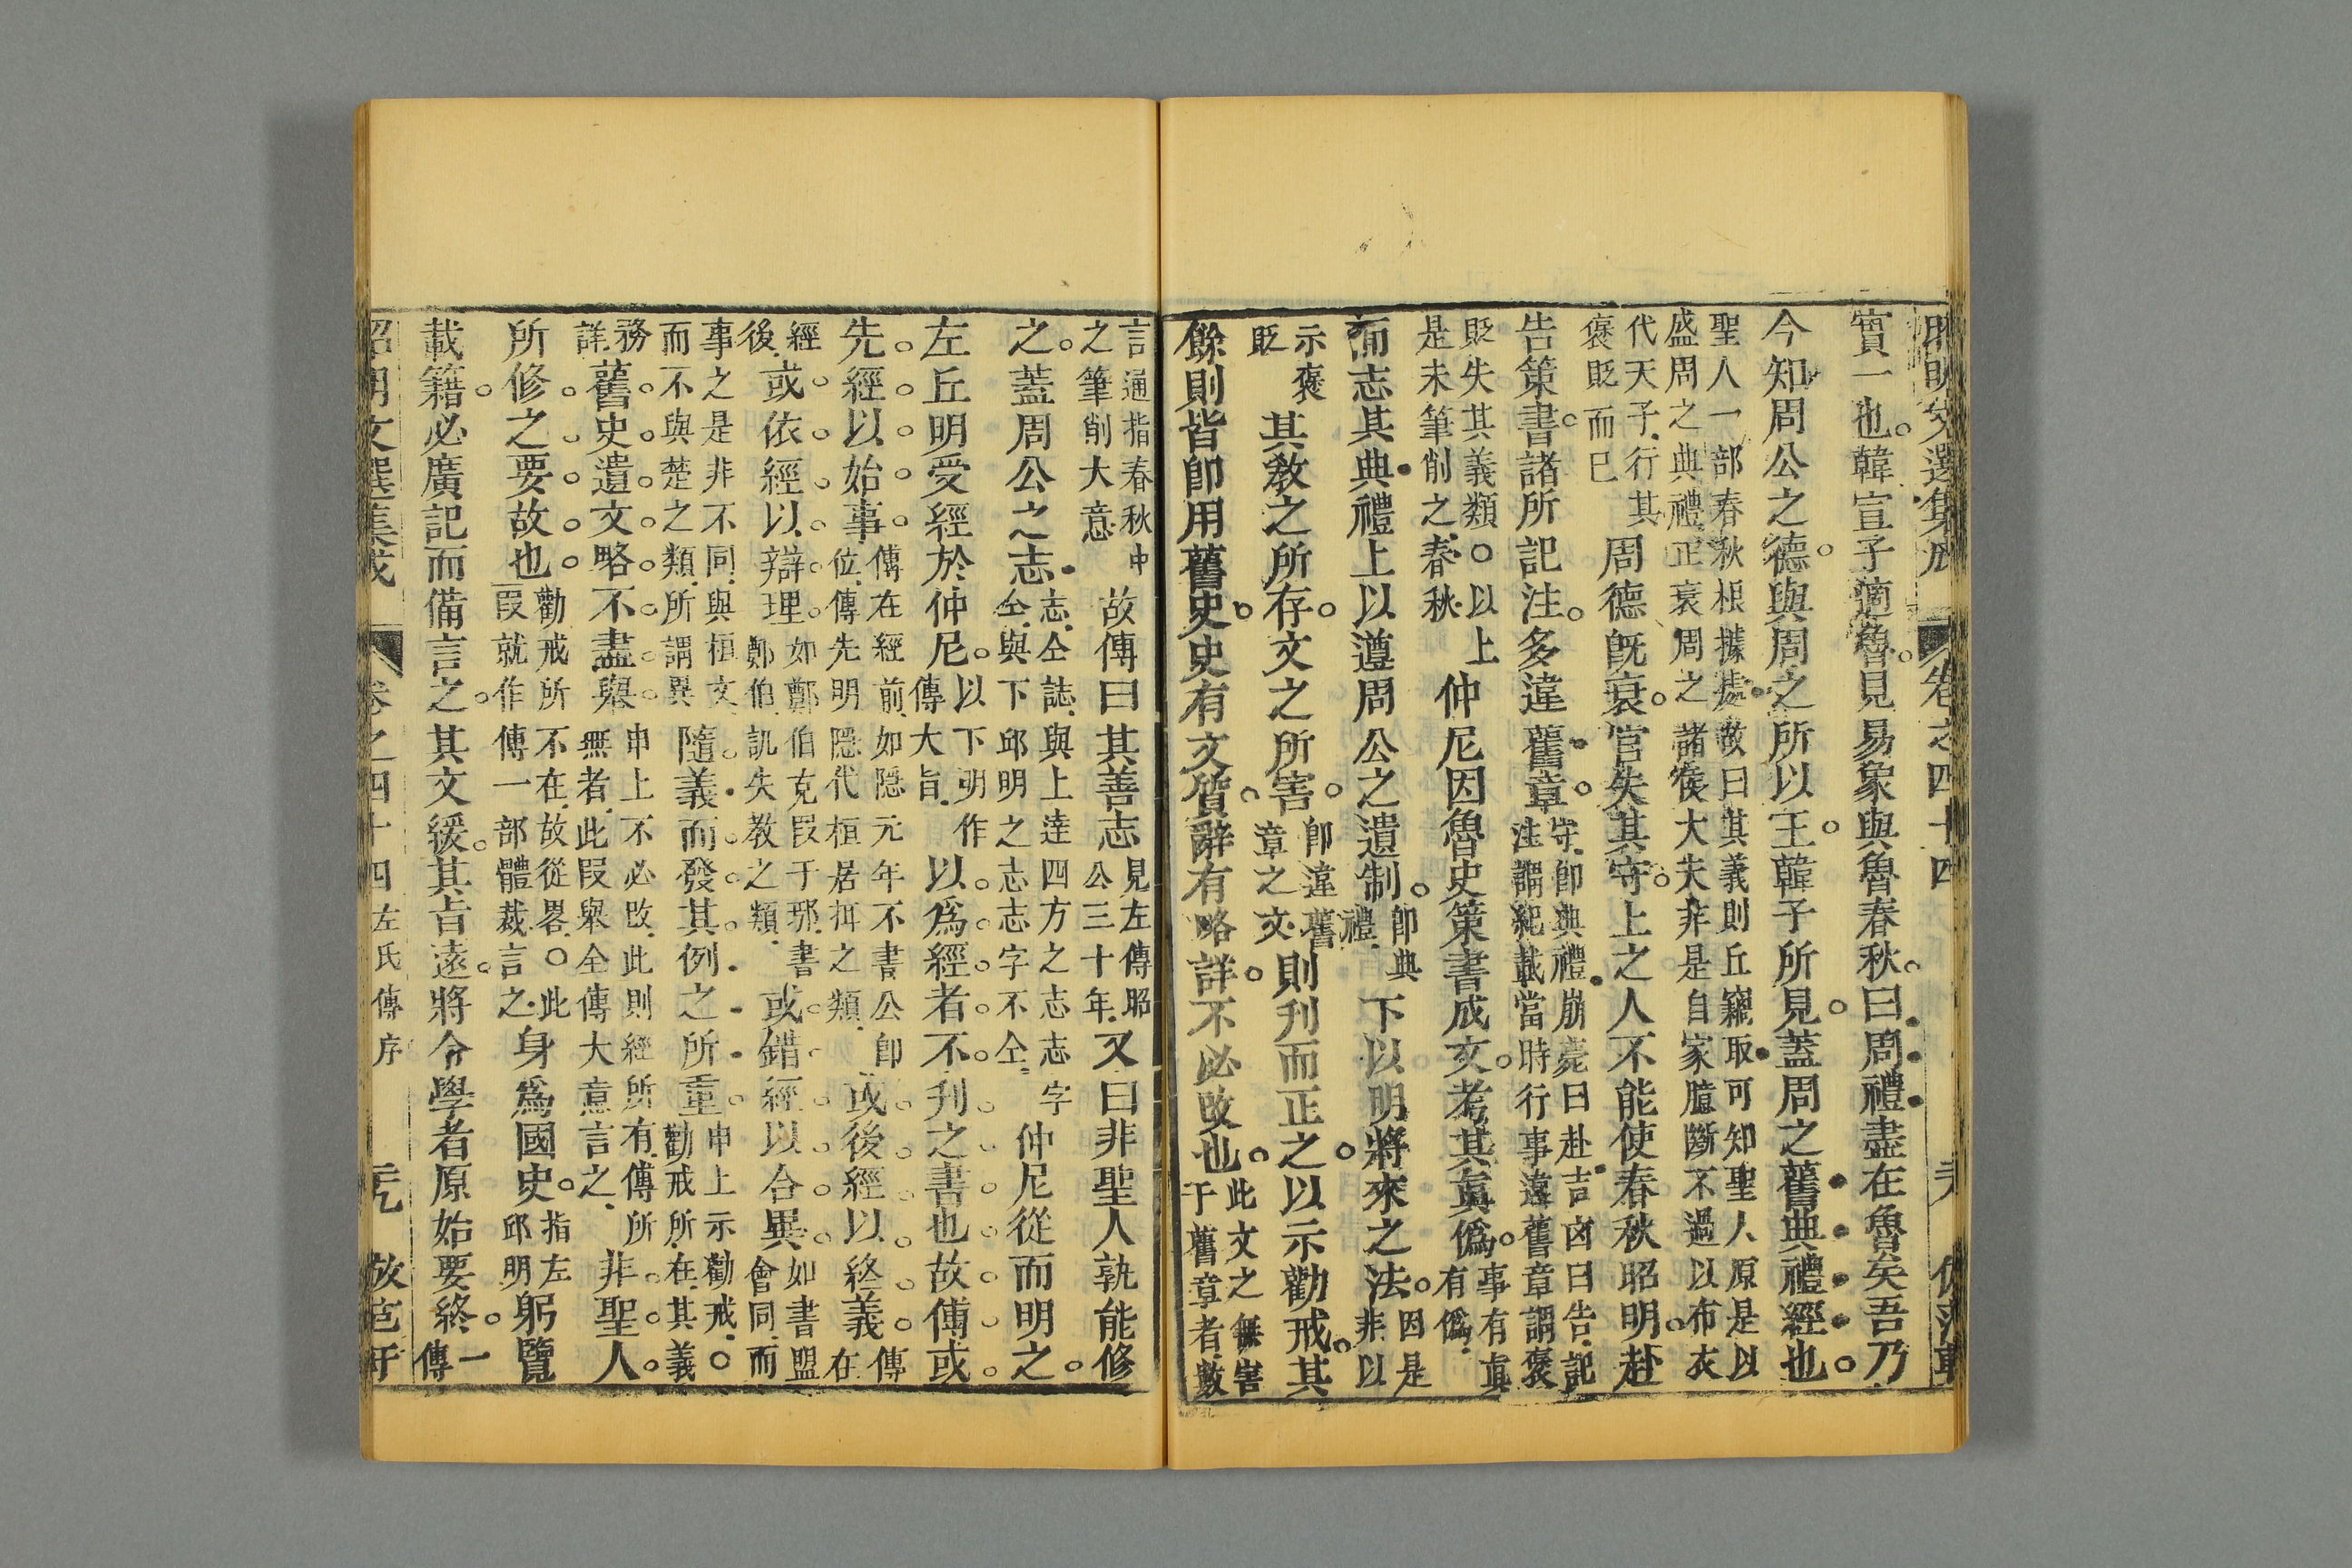 昭明文選集成 卷之四十四
實一也韓宣子適魯見易象與魯春秋曰周禮盡在魯矣吾乃
今知周公之德與周之所以王韓子所見蓋周之舊典禮經也
聖人一部春秋根據處故曰其義則丘竊取可知聖人原是以
盛周之典禮正衰周之諸侯大夫非是自家臆斷不過以布衣
代天子行其
褒貶而已
周德既衰官失其守上之人不能使春秋昭明赴
告策書諸所記注多違舊章
守即典禮崩薨曰赴吉凶曰告記
注謂紀載當時行事違舊章謂褒
貶失其義類○以上
是未筆削之春秋
仲尼因魯史策書成文考其真偽
事有真
有偽
而志其典禮上以遵周公之遺制
即典
禮
下以明將來之法
因是
非以
示褒
貶
其教之所存文之所害
即違舊
章之文
則刊而正之以示勸戒其
餘則皆即用舊史史有文質辭有略詳不必改也
此文之無害
于舊章者數
言通指春秋中
之筆削大意
故傳曰其善志
見左傳昭
公三十年
又曰非聖人孰能修
之蓋周公之志
志仝誌與上達四方之志志字
仝與下邱明之志志字不仝
仲尼從而明之
左丘明受經於仲尼
以下明作
傳大旨
以為經者不刊之書也故傳或
先經以始事
傳在經前如隱元年不書公即
位傳先明隱代桓居攝之類
或後經以終義
傳在
經
後
或依經以辯理
如鄭伯克段于鄢書
鄭伯譏失教之類
或錯經以合異
如書盟
會同而
事之是非不同與桓文
而不與楚之類所謂異
隨義而發其例之所重
申上示勸戒○
勸戒所在其義
務
詳
舊史遺文略不盡舉
申上不必改此則經所有傳所
無者此段舉全傳大意言之
非聖人
所修之要故也
勸戒所不在故從畧○此
一段就作傳一部體裁言之
身為國史
指左
邱明
躬覽
載籍必廣記而備言之其文緩其旨遠將令學者原始要終
一
傳
昭明文選集成 卷之四十四 左氏傳序